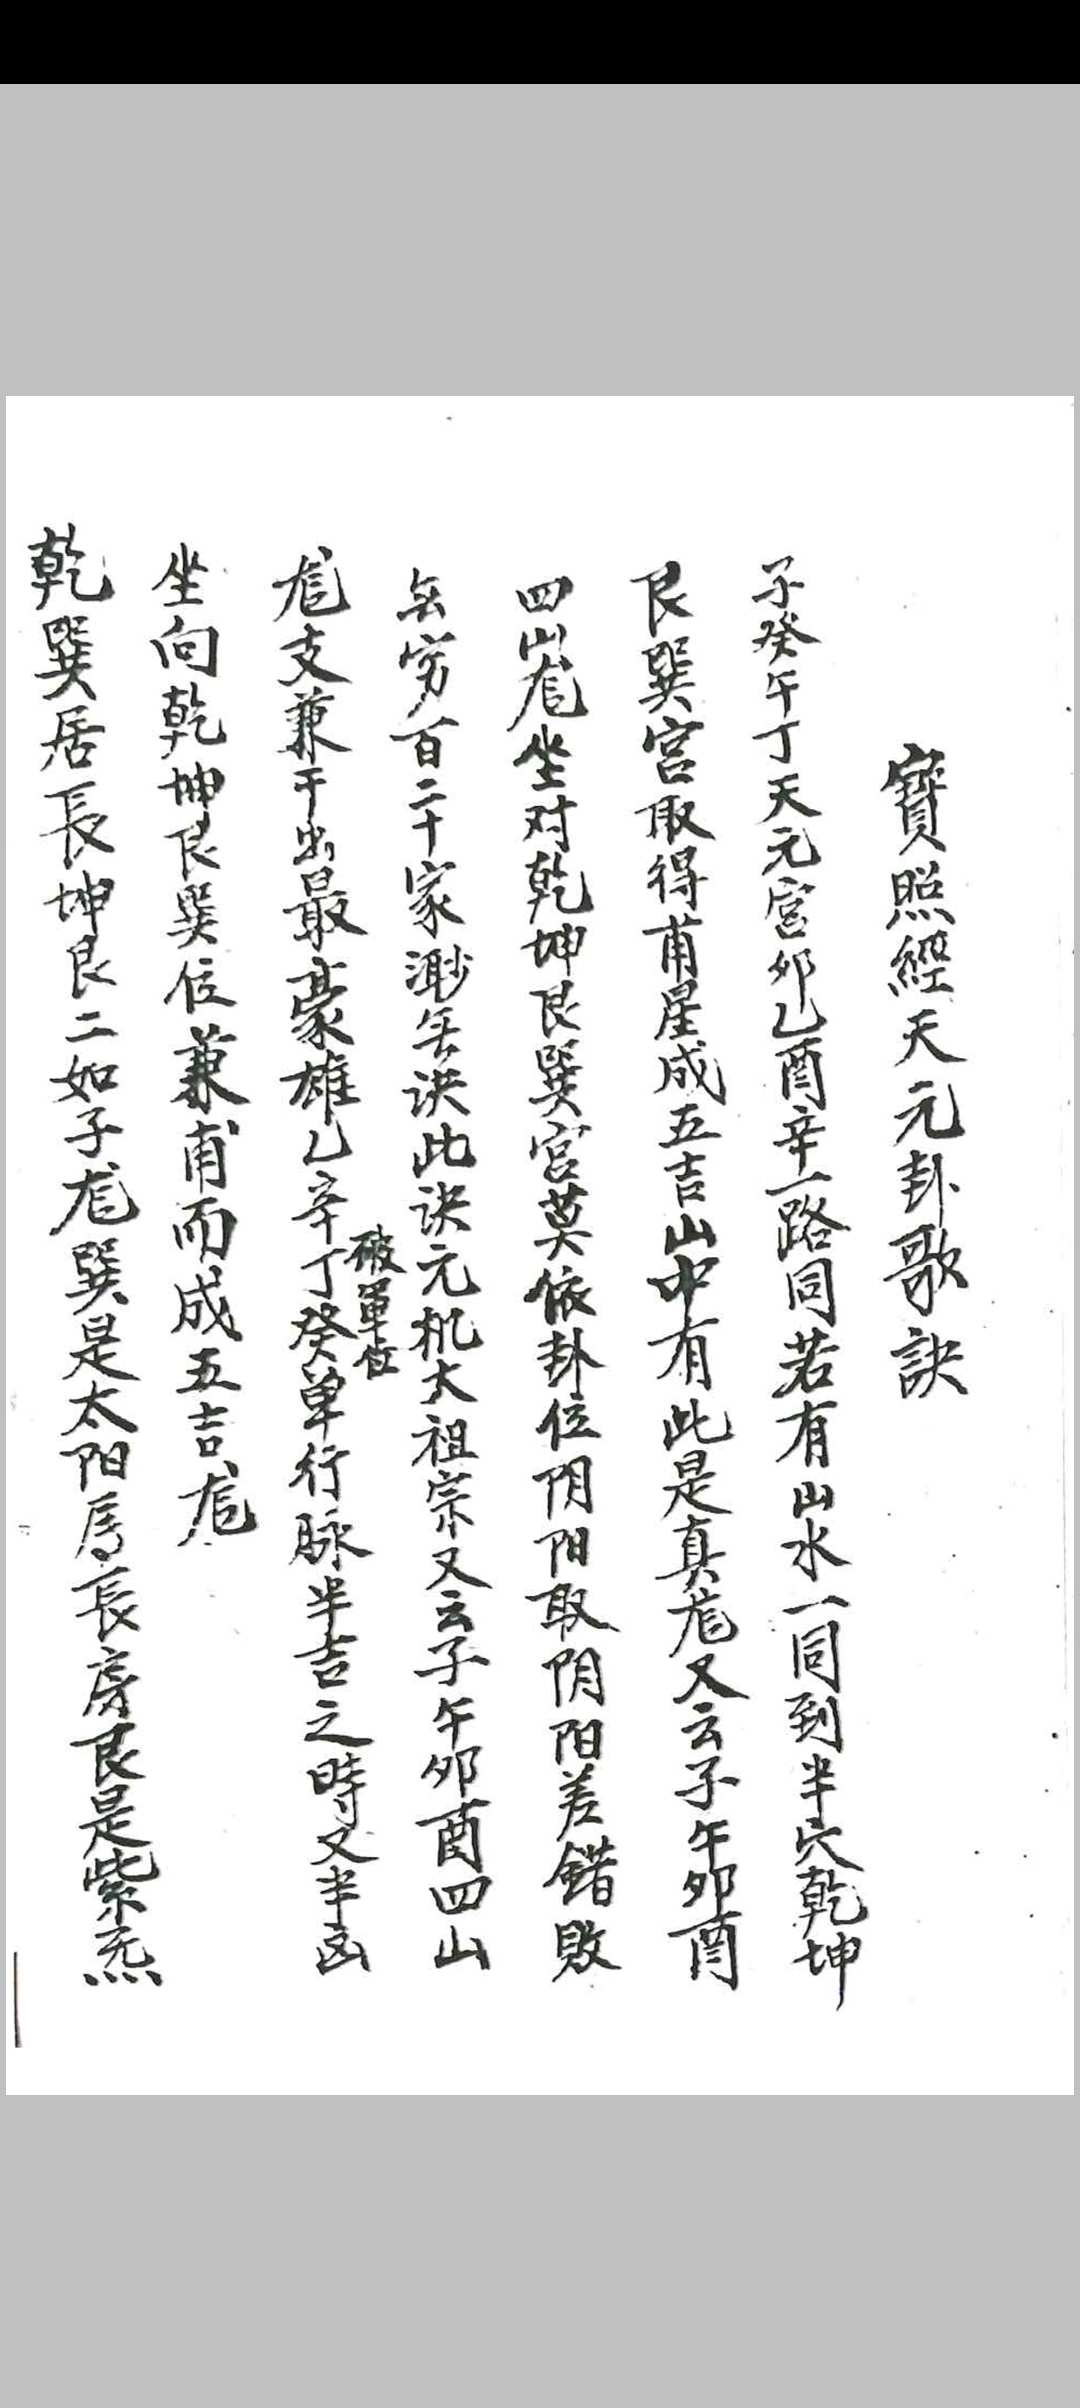 寶照經天元卦歌訣
子癸午丁天元宮卯乙酉辛一路同若有山水一同到半穴乾坤
艮巽宮取得甫星成五吉山中有此是真尨又云子午卯酉
四山尨坐对乾坤艮巽宮莫依卦位阴阳取阴阳差錯敗
無穷百二十家渺無诀此诀元机大祖宗又云子午卯酉四山
尨支兼干出最豪雄乙辛丁癸单行脉半吉之時又半凶
破軍位
坐向乾坤艮巽位兼甫而成五吉尨
乾巽居長坤艮二如子尨巽是太阳為長房艮是紫炁